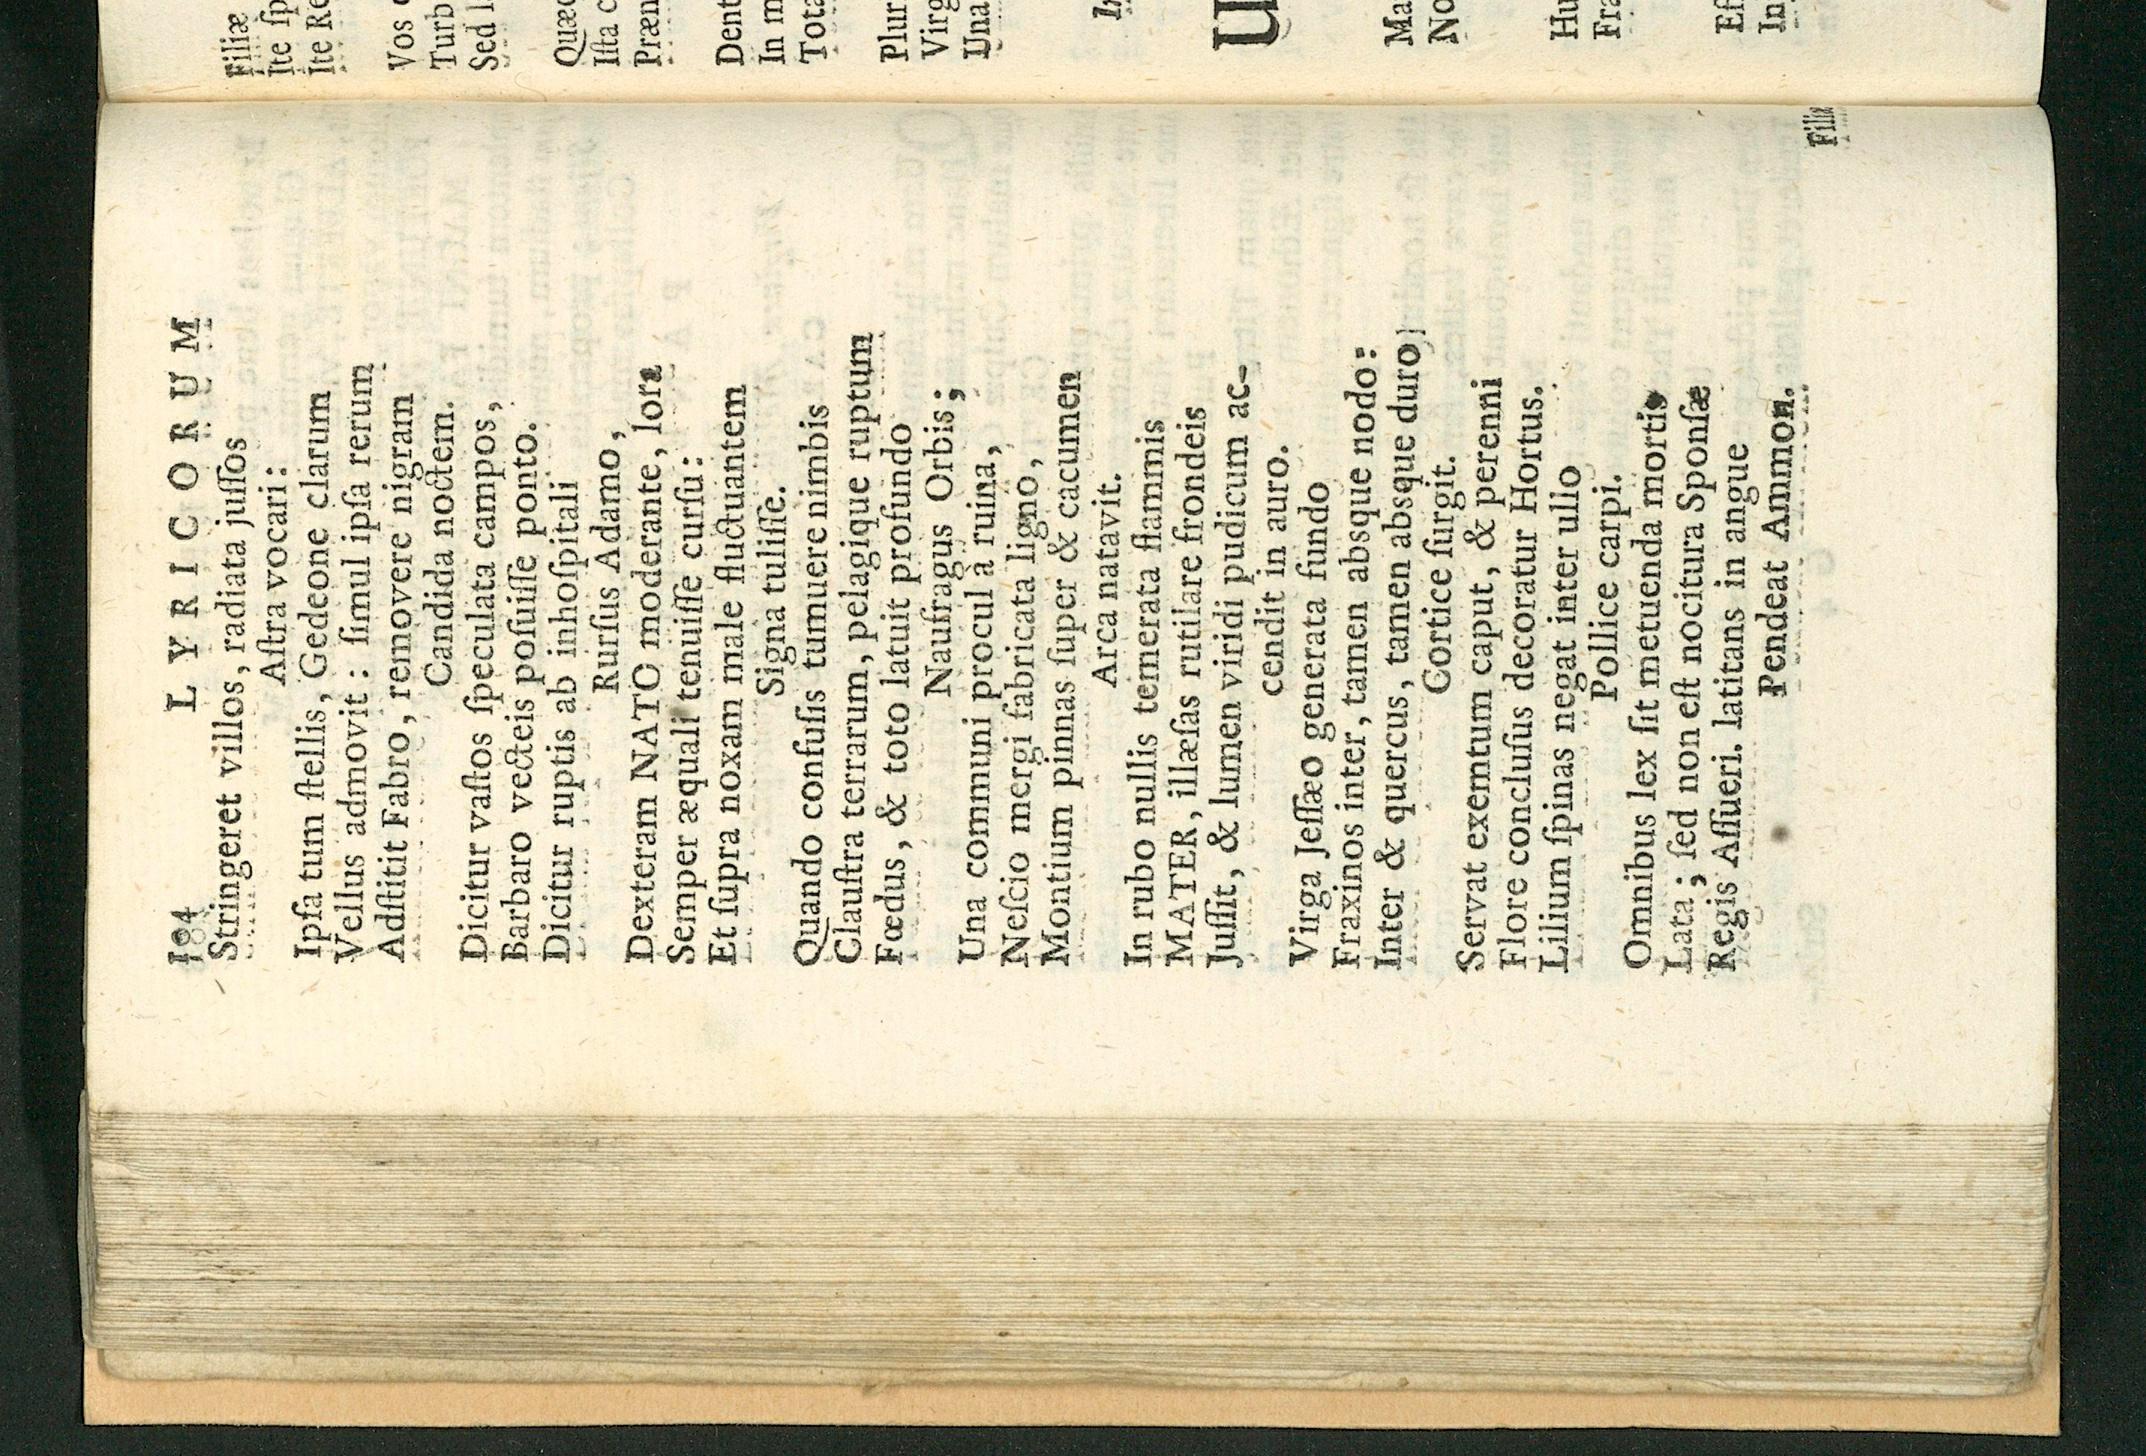 104 LYRICORUM
Stringeret villos, radiata juſſos
Aſtra vocari:
Ipſa tum ſtellis, Gedeone clarum
Vellus admovit: ſimul ipſa rerum
Adſtitit Fabro, removere nigram
Candida noctem.
Dicitur vaſtos ſpeculata campos,
Barbaro vecteis poſuiſſe ponto.
Dicitur ruptis ab inhoſpitali
Rurſus Adamo,
Dexteram NATO moderante, lora
Semper æquali tenuiſſe curſu:
Et ſupra noxam male fluctuantem
Signa tuliſſe.
Quando confuſis tumuere nimbis
Clauſtra terrarum, pelagique ruptum
Fœdus, & toto latuit profundo
Naufragus Orbis;
Una communi procul à ruina,
Neſcio mergi fabricata ligno,
Montium pinnas ſuper & cacumen
Arca natavit.
In rubo nullis temerata flammis
MATER, illæſas rutilare frondeis
Juſſit, & lumen viridi pudicum ac-
cendit in auro.
Virga Jeſſæo generata fundo
Fraxinos inter, tamen absque nodo:
Inter & quercus, tamen absque duro
Cortice ſurgit.
Servat exemtum caput, & perenni
Flore concluſus decoratur Hortus.
Lilium ſpinas negat inter ullo
Pollice carpi.
Omnibus lex ſit metuenda mortis
Lata; ſed non eſt nocitura Sponſæ
Regis Aſſueri. latitans in angue
Pendeat Ammon.
Filiæ
Filiæ
Ite ſp
Ite Re
Vos
Turb
Sed
Quæ
Iſta c
Præn
Dent
In m
Tota
Plur
Virg
Una
In
U
Ma
No
Hu
Fra
Eſ
In